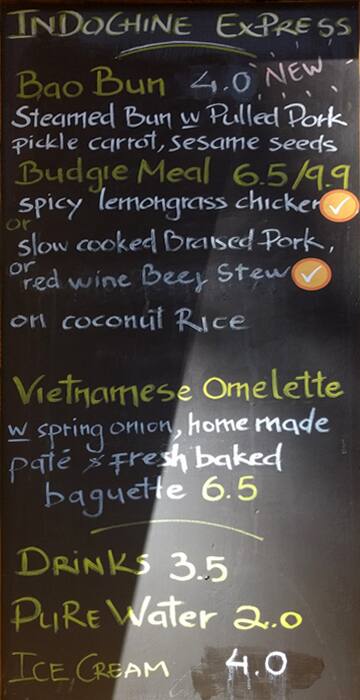 INDOCHINE EXPRESS
Bao Bun 4.0 NEW
Steamed Bun w Pulled Pork
pickle carrot, sesame seeds
Budgie Meal 6.5/9.9
spicy lemongrass chicken
or
slow cooked Braised Pork,
or
red wine Beef Stew
on coconut Rice
Vietnamese Omelette
w spring onion, home made
paté & fresh baked
baguette 6.5
DRINKS 3.5
PURE Water 2.0
ICE CREAM 4.0